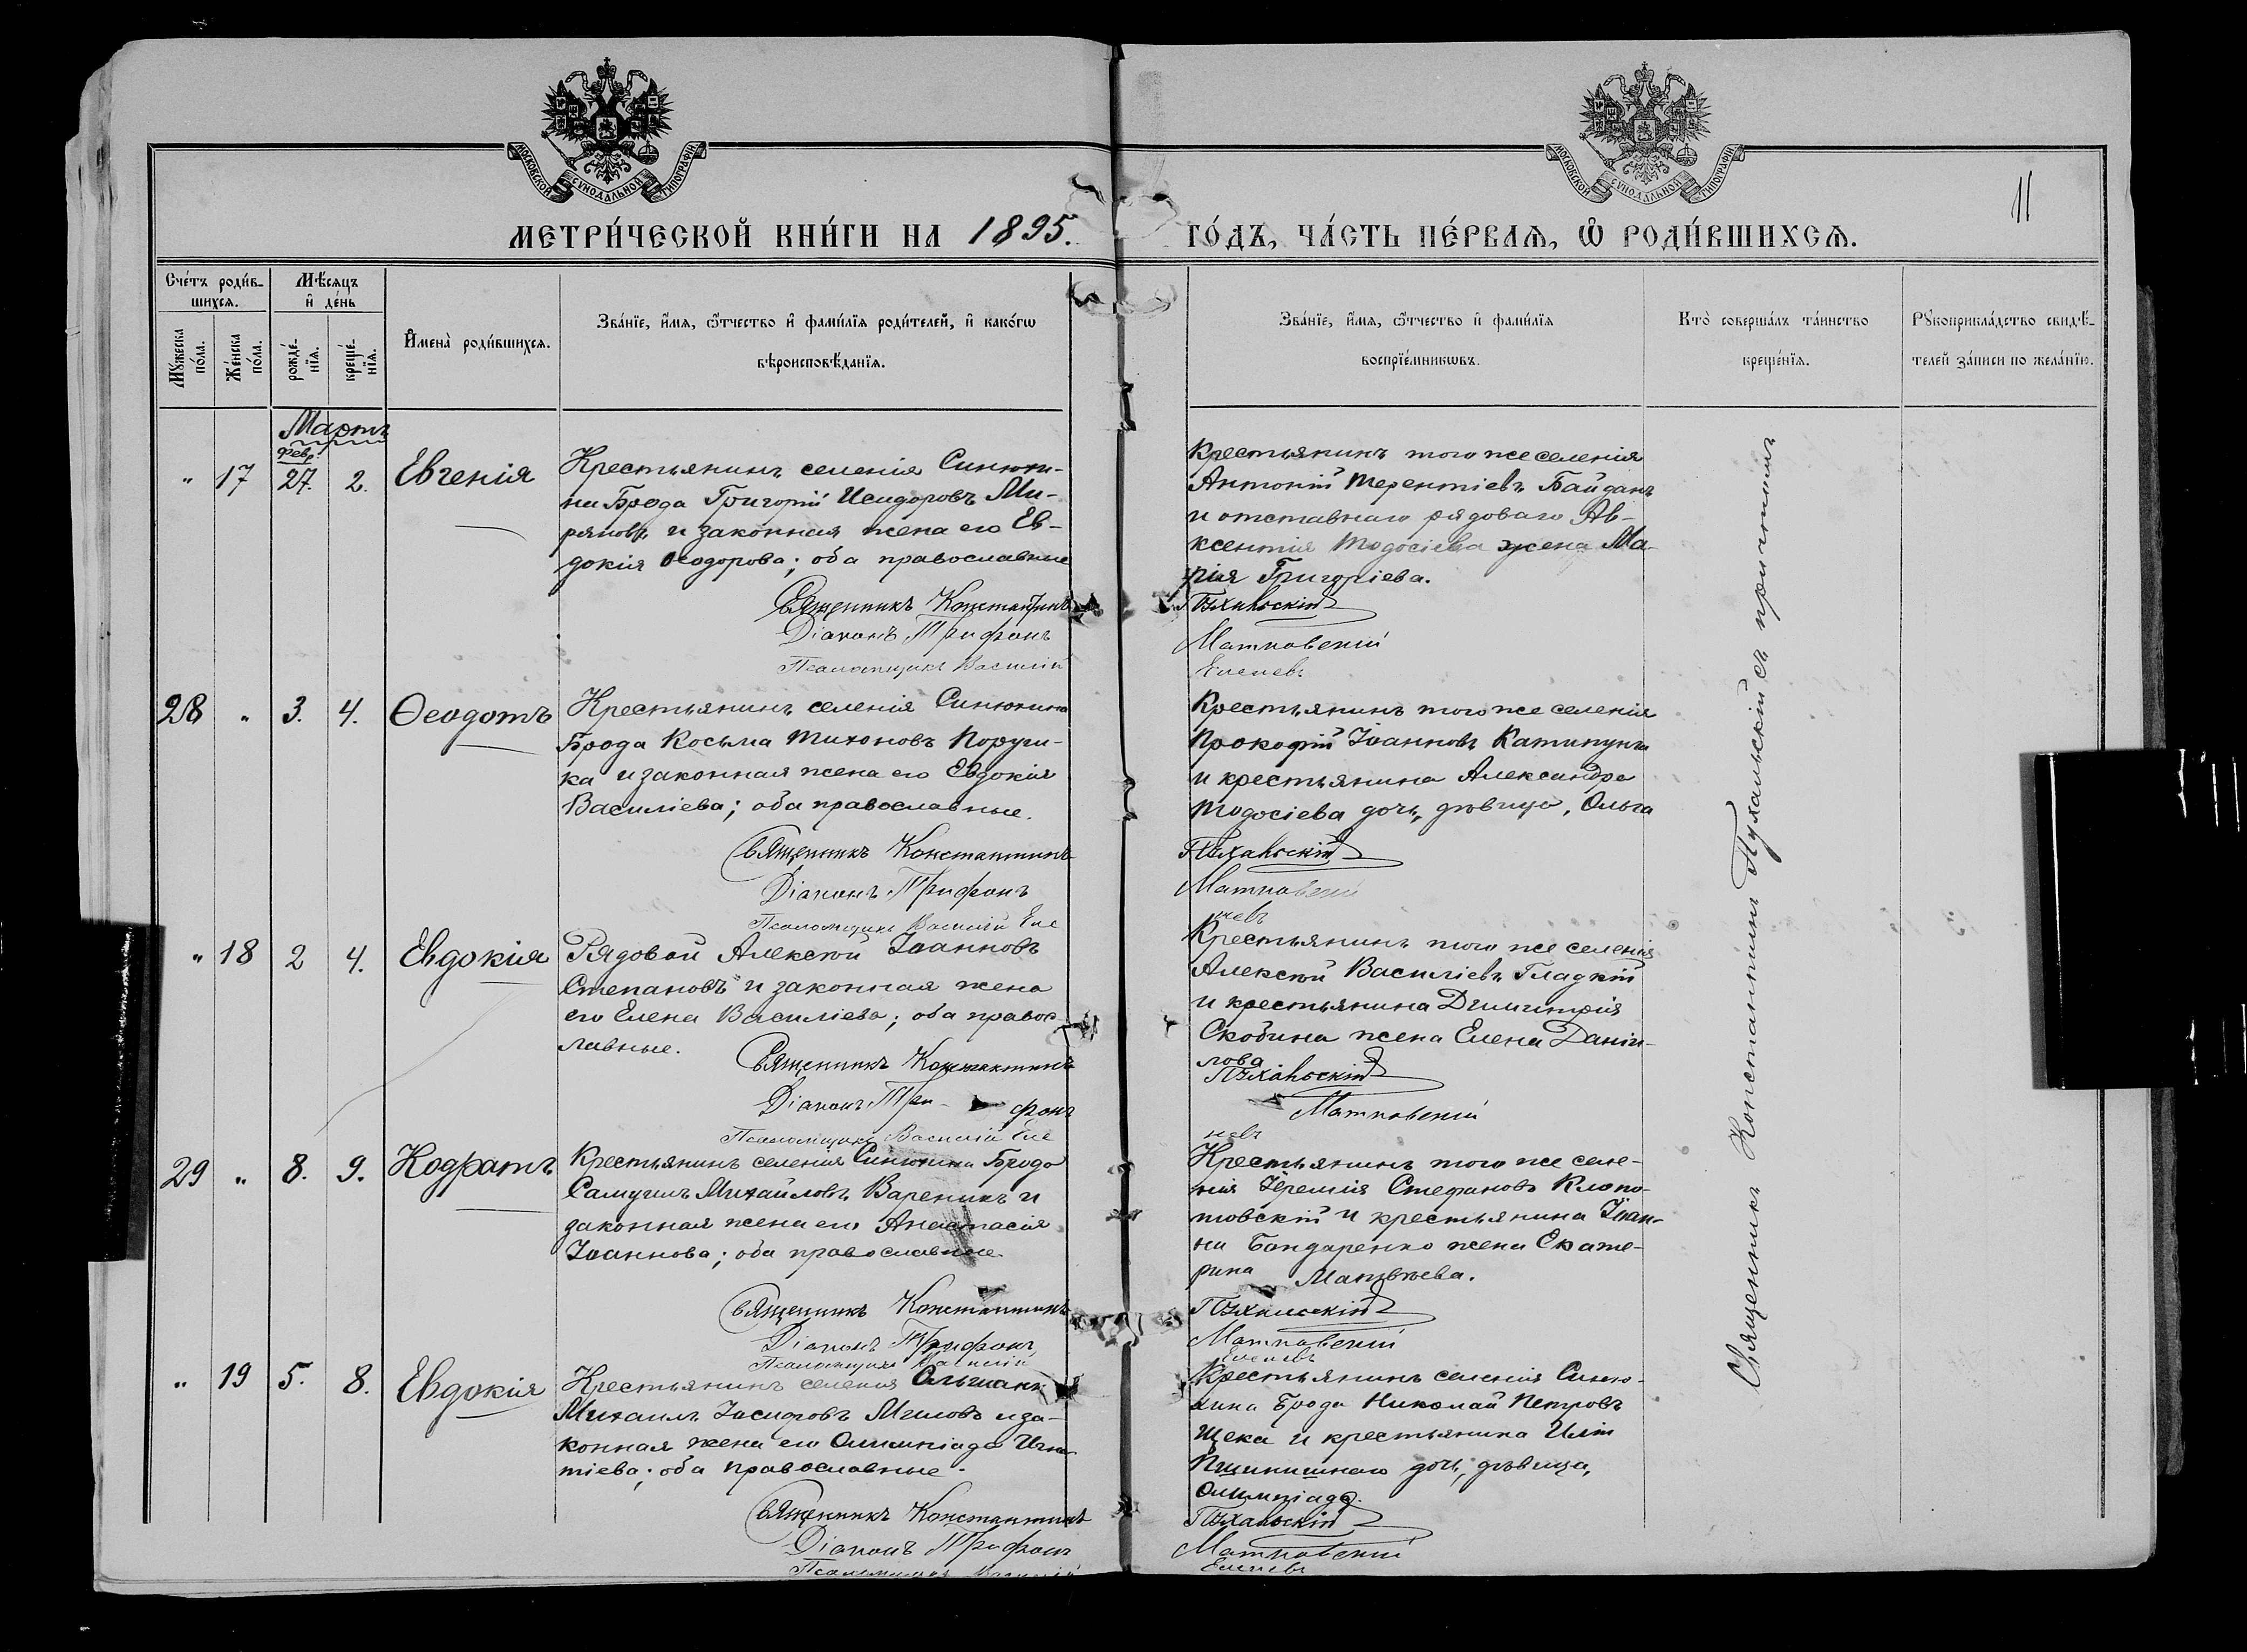 МОСКОВСКОЙ СѴНОДАЛЬНОЙ ТИПОГРАФІИ
МОСКОВСКОЙ СѴНОДАЛЬНОЙ ТИПОГРАФІИ
11
МЕТРИ́ЧЕСКОЙ КНИ́ГИ НА 1895.
ГО́ДЪ, ЧА́СТЬ ПЕ́РВАѦ, Ѡ҆ РОДИ́ВШИХСѦ.
Сче́тъ роди́в-
шихсѧ.
Мꙋжеска
по́ла.
Же́нска
по́ла.
Мѣ́сѧцъ
и҆ де́нь
рожде́-
нїѧ.
креще́-
нїѧ.
И҆мена̀ роди́вшихсѧ.
Зва́нїе, и҆́мѧ, ѻ҆́тчество и҆ фами́лїѧ роди́телей, и҆ како́гѡ
вѣроисповѣ́данїѧ.
Зва́нїе, и҆́мѧ, ѻ҆́тчество и҆ фами́лїѧ
воспрїе́мникѡвъ.
Кто̀ соверша́лъ та́инство
креще́нїѧ.
Рꙋкоприкла́дство свидѣ́-
телей за́писи по жела́нїю.
Мартъ
февр.
" 17 27. 2. Евгенія
Крестьянинъ селенія Синюхи-
на Брода Григорій Исидоровъ Ми-
ряновъ и законная жена его Ев-
докія Ѳеодорова; оба православные
Священникъ Константинъ
Діаконъ Трифонъ
Псаломщикъ Василій
Крестьянинъ того же селенія
Антоній Терентіевъ Байданъ
и отставнаго рядоваго Ав-
ксентія Тодосіева жена Ма-
рія Григоріева.
Пухальскій
Матковскій
Еленевъ
28 " 3. 4. Ѳеодотъ
Крестьянинъ селенія Синюхина
Брода Косьма Тихоновъ Поручи-
ка и законная жена его Евдокія
Василіева; оба православные.
Священникъ Константинъ
Діаконъ Трифонъ
Псаломщикъ Василій Еле
Крестьянинъ того же селенія
Прокофій Іоанновъ
и крестьянина Александра
Тодосіева дочь, дѣвица, Ольга
Пухальскій
Матковскій
невъ
" 18 2 4. Евдокія
Рядовой Алексѣй Іоанновъ
Степановъ и законная жена
его Елена Василіева; оба правос-
лавные.
Священникъ Константинъ
Діаконъ Три- фонъ
Псаломщикъ Василій Еле
Крестьянинъ того же селенія
Алексѣй Василіевъ Гладкій
и крестьянина Димитрія
Скобина жена Елена Даніи-
лова
Пухальскій
Матковскій
невъ
29 " 8. 9. Кодратъ
Крестьянинъ селенія Синюхина Брода
Самуилъ Михайловъ Вареникъ и
законная жена его Анастасія
Іоаннова; оба православные
Священникъ Константинъ
Діаконъ Трифонъ
Псаломщикъ Василій
Крестьянинъ того же селе-
нія Іеремія Стефановъ Клопо-
товскій и крестьянина Іоан-
на Бондаренко жена Екате-
рина Матвѣева.
Пухальскій
Матковскій
Еленевъ
" 19 5. 8. Евдокія
Крестьянинъ селенія Ольшанки
Михаилъ Іосифовъ и за-
конная жена его Олимпіада Игна-
тіева; оба православные.
Священникъ Константинъ
Діаконъ Трифонъ
Псаломщикъ Василій
Крестьянинъ селенія Синю-
хина Брода Николай Петровъ
Щека и крестьянина Иліи
Пшеничнаго дочь, дѣвица,
Олимпіада.
Пухальскій
Матковскій
Еленевъ
Священникъ Константинъ Пухальскій съ причтомъ